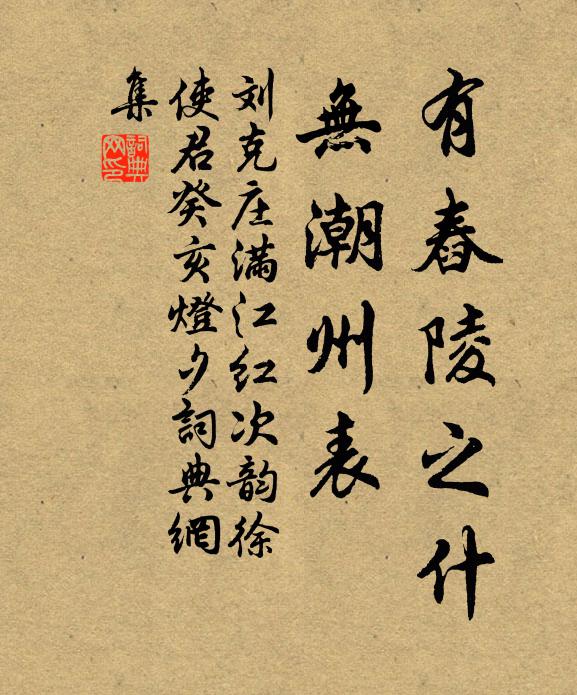 有舂陵之什
無潮州表
刘克庄满江红次韵徐
使君癸亥燈夕詞典網
集
詞典
网印